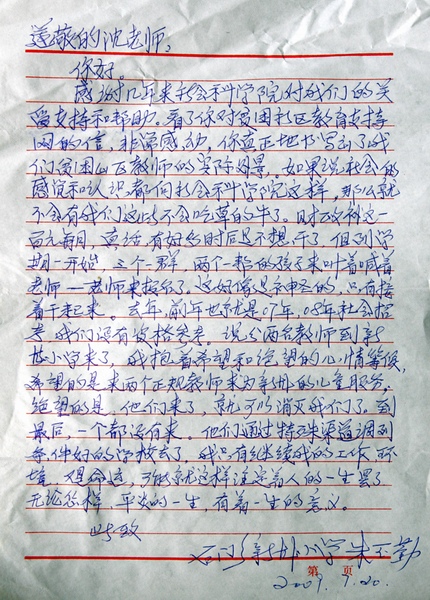 尊敬的沈老师：
你好。
感谢几年来社会科学院对我们的关
爱支持和帮助。看了你对贫困社区教育支持
网的信，非常感动，你真正地书写到了我
们贫困山区教师的实际内景。如果说社会的
感觉和认识都向社会科学院这样，那么就
不会有我们这些不会吃草的牛了。财政补这一
百元每月，真话，有好多时后是不想干了，但到学
期一开始 三个一群，两个一帮的孩子来叫着喊着
老师——老师来报名了。这好像是不神圣的，只有接
着干起来。去年，前年也就是07年，08年社会招
考，我们没有资格参考，说分两名教师到新
小学来了，我抱着希望和绝望的心情等候，
希望的是来两个正规教师来为新的儿童服务。
绝望的是，他们来了，就可以消灭我们了。到
最后，一个都没有来。他们通过特殊渠道调到
条件好的学校去了，我只有继续我的工作环
境，观命运，可能就这样注定着人的一生罢了
无论怎样，平淡的一生，有着一生的意义。
此致
石门 新 小学 朱 勤
第 页
2009.7.20.